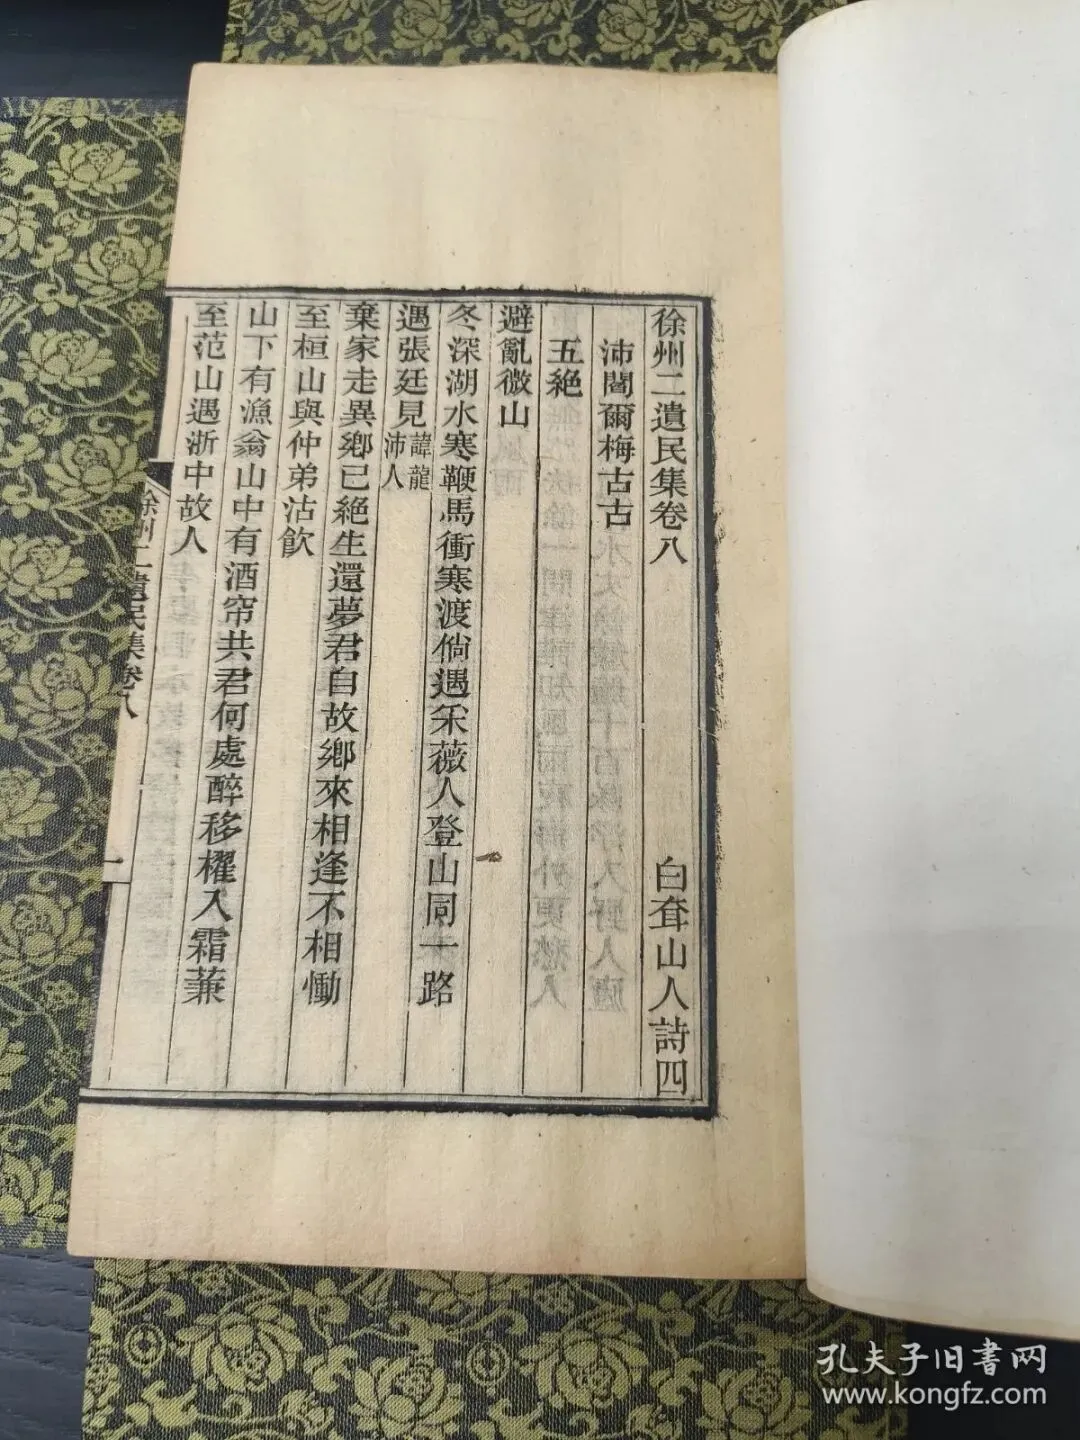 徐州二遺民集卷八　白耷山人詩四
沛閻爾梅古古
五絶
避亂微山
冬深湖水寒鞭馬衝寒渡倘遇采薇人登山同一路
遇張廷見諱龍沛人
棄家走異鄉已絶生還夢君自故鄉來相逢不相慟
至桓山與仲弟沽飲
山下有漁翁山中有酒帘共君何處醉移櫂入霜蒹
至范山遇浙中故人
徐州二遺民集卷八
一
孔夫子旧書网
www.kongfz.com